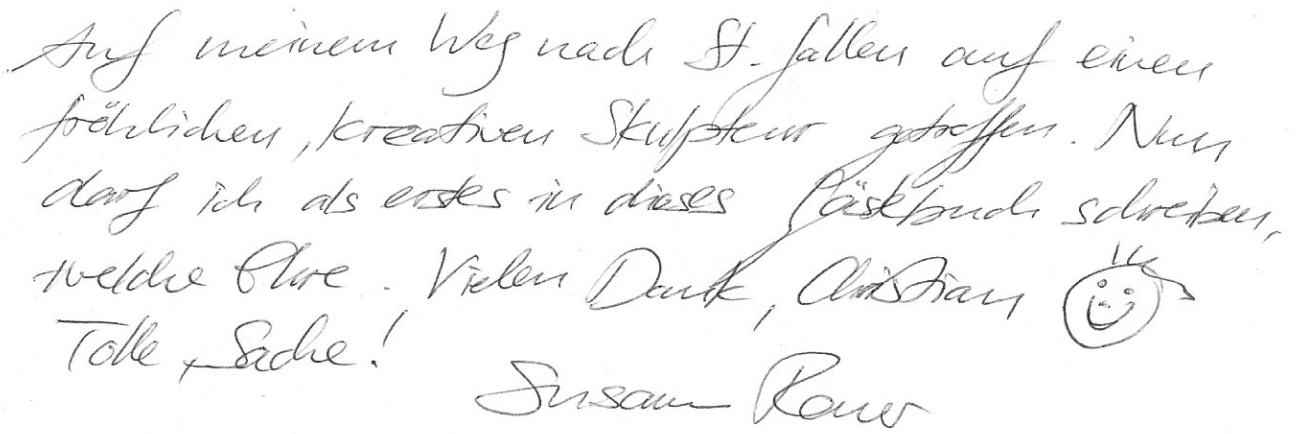 Auf meinem Weg nach St. Gallen auf einen
fröhlichen, kreativen Skulpteur getroffen. Nun
darf ich als erstes in dieses Gästebuch schreiben,
welche Ehre. Vielen Dank, Christian
Tolle Sache!
Susann